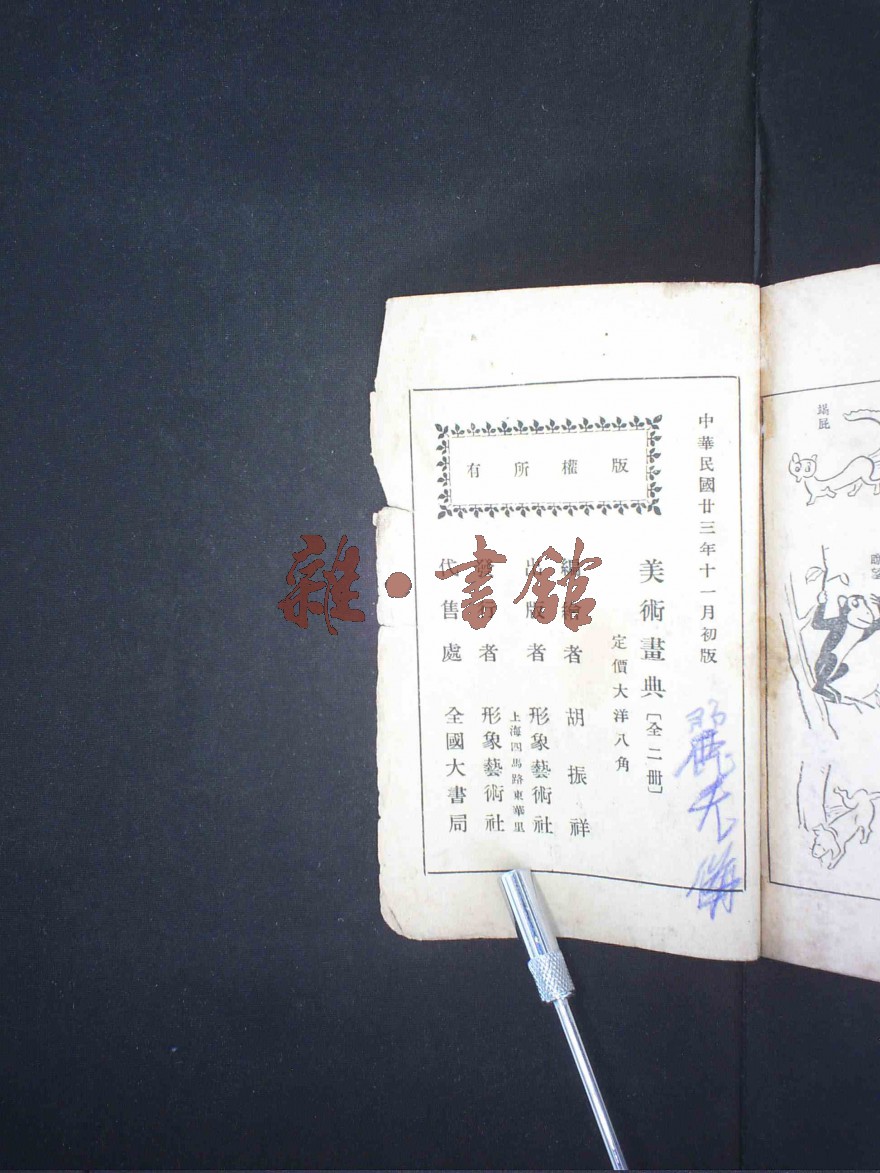 中華民國廿三年十一月初版
美術畫典〔全二冊〕
定價大洋八角
版權所有
編繪者 胡振祥
出版者 形象藝術社
上海四馬路東華里
發行者 形象藝術社
代售處 全國大書局
雜·書館